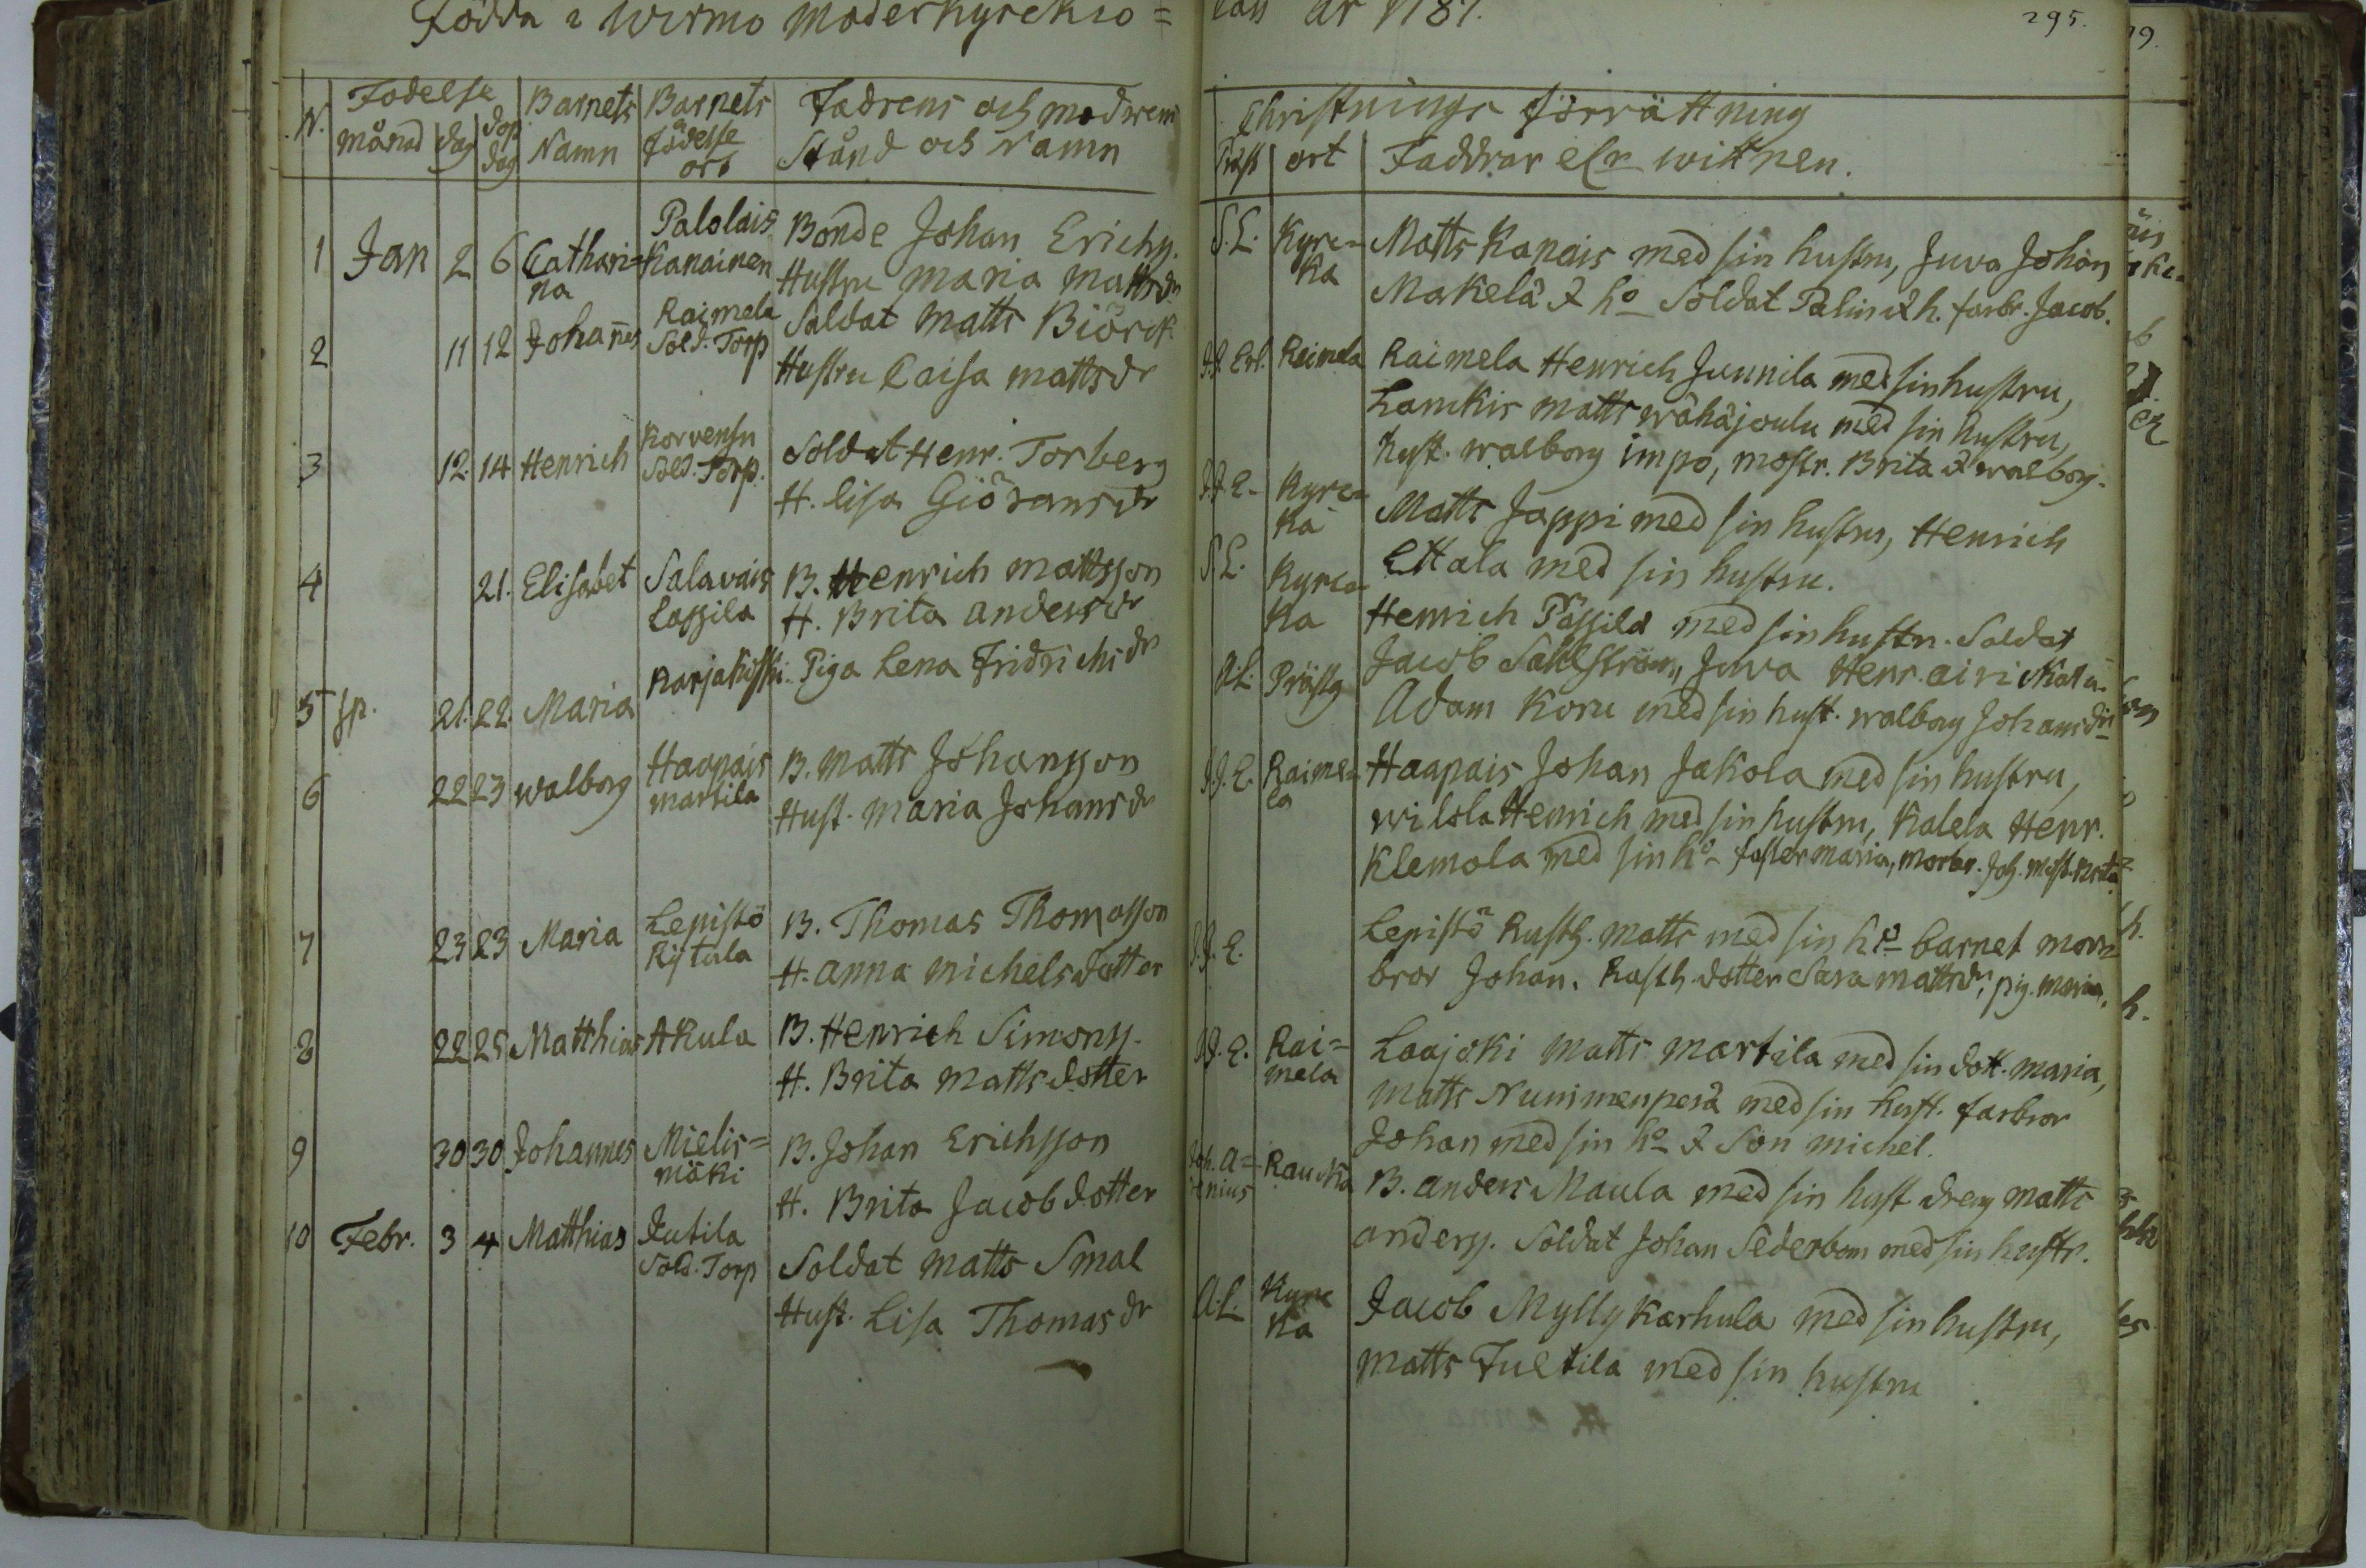 Födda i Wirmo Moderkyrckio=
lan År 1787.
295.
N.
Födelse
månad
dag
dop dag
Barnets Namn
Barnets födelse ort
Fadrens och modrens
Stånd och Namn
Christnings förrättning
Präst
ort
Faddrar elr wittnen.
1 Jan 2 6 Catharina
Palolais Kanainen
Bonde Johan Erichs.
Hustru Maria Mattsdr
2 11 12 Johannes
Raimela Sold. Torp
Soldat Matts Biörck
Hustru Caisa Mattsdr
3 12. 14 Henrich
Korvensu Sold. Torp.
Soldat Henr. Torberg
H. Lisa Giöransdr
4 21. Elisabet
Salavais Lassila
B. Henrich Mattsson
H. Brita Andersdr
5 sp. 21. 22. Maria
Karjakoski
Piga Lena Fridrichsdr
6 22 23 Walborg
Haapais Martila
B. Matts Johansson
Hust. Maria Johansdr
7 23 23 Maria
Lepistö Kijtula
B. Thomas Thomasson
H. Anna Michelsdotter
8 22 25 Matthias Akula
B. Henrich Simons.
H. Brita Mattsdotter
9 30 30 Johannes
Mielis=mäki
B. Johan Erichsson
H. Brita Jacobdotter
10 Febr. 3 4 Matthias
Jutila Sold. Torp
Soldat Matts Smal
Hust. Lisa Thomasdr
S.L. Kyrc=ka
Matts Kanais med sin hustru, Juva Johan
Makelä & ho Soldat Palin & h. farbr. Jacob.
J.J. Erl. Reimela
Raimela Henrich Junnila med sin hustru,
Lamkis Matts Wähäjoulu med sin hustru,
Hust. Walborg Impo, mostr. Brita & Walborg.
J.J.E. Kyrc=ka
Matts Jappi med sin hustru, Henrich
Ettala med sin hustru.
S.L. Kyrc=ka
Henrich Pässilä med sin hustr. Soldat
Jacob Sahlström, Juva Henr. airi
A.L. Prästg
Adam Koru med sin hust. Walborg Johansdr
J.J.E. Raime=la
Haapais Johan Jakola med sin hustru,
Wilola Henrich med sin hustru, Kalela Henr.
Klemola med sin ho faster Maria, morbr. Joh. most. Brita
J.J.E.
Lepistö Rusth. Matts med sin ho barnet mor
bror Johan. Rusth. dotter Sara Mattsdr, pig. Maria.
J.J.E. Rai=mela
Laajoki Matts Martila med sin dott. Maria,
Matts Nummenperä med sin hust. farbror
Johan med sin ho & Son Michel.
Joh. A= nius Raucka
B. Anders Maula med sin hust dreng Matts
Anders. Soldat Johan Sederbom med sin hustr.
A.L. Kyrc ka
Jacob Mylly Karhula med sin hustru,
Matts Juttila med sin hustru